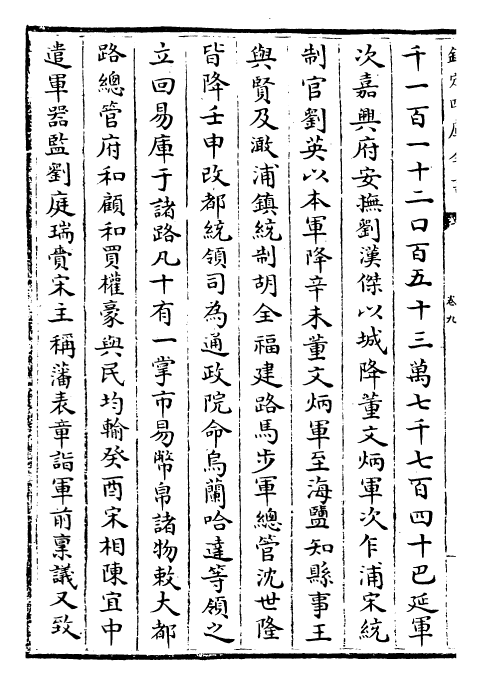 欽定四庫全書
卷九
千一百一十二口百五十三萬七千七百四十巴延軍
次嘉興府安撫劉漢傑以城降董文炳軍次乍浦宋統
制官劉英以本軍降辛未董文炳軍至海鹽知縣事王
與賢及澉浦鎮統制胡全福建路馬步軍總管沈世隆
皆降壬申改都統領司為通政院命烏蘭哈達等領之
立回易庫于諸路凡十有一掌市易幣帛諸物敕大都
路總管府和顧和買權豪與民均輸癸酉宋相陳宜中
遣軍器監劉庭瑞賫宋主稱藩表章詣軍前禀議又致